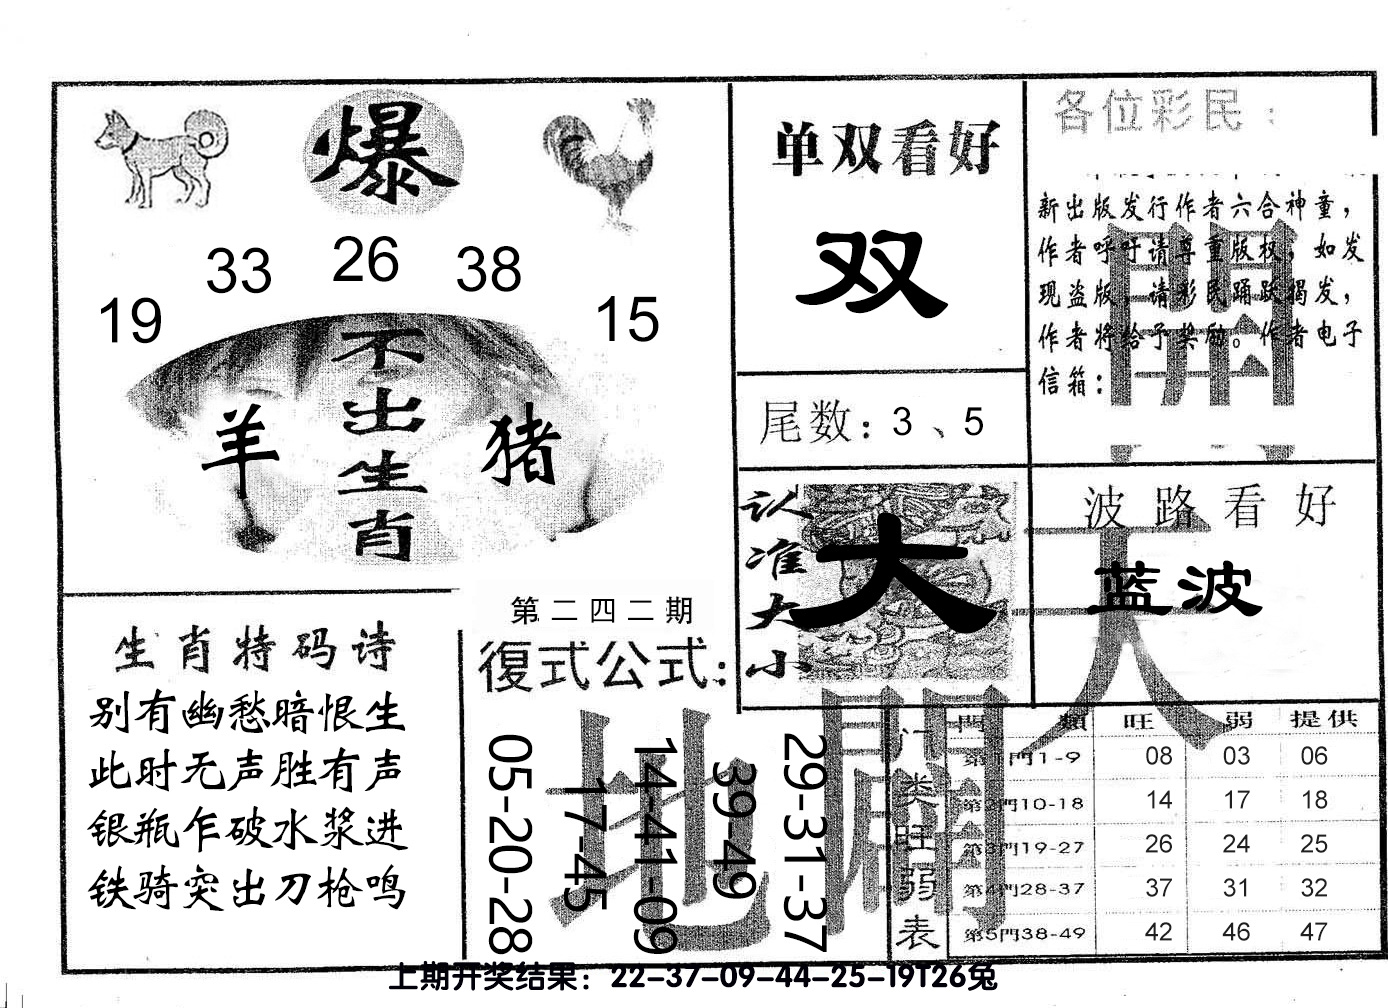 爆
19 33 26 38 15
不出生肖
羊 猪
生肖特码诗
别有幽愁暗恨生
此时无声胜有声
银瓶乍破水浆进
铁骑突出刀枪鸣
第二四二期
復式公式:
05-20-28
17-45
14-41-09
39-49
29-31-37
单双看好
双
尾数: 3、5
认准大小
大
各位彩民:
新出版发行作者六合神童,
作者呼吁请尊重版权, 如发
现盗版, 请彩民踊跃揭发,
作者将给予奖励。作者电子
信箱:
波路看好
蓝波
天
地
開
門类旺弱表
門類 旺 弱 提供
第1門1-9 08 03 06
第2門10-18 14 17 18
第3門19-27 26 24 25
第4門28-37 37 31 32
第5門38-49 42 46 47
上期开奖结果: 22-37-09-44-25-19T26兔